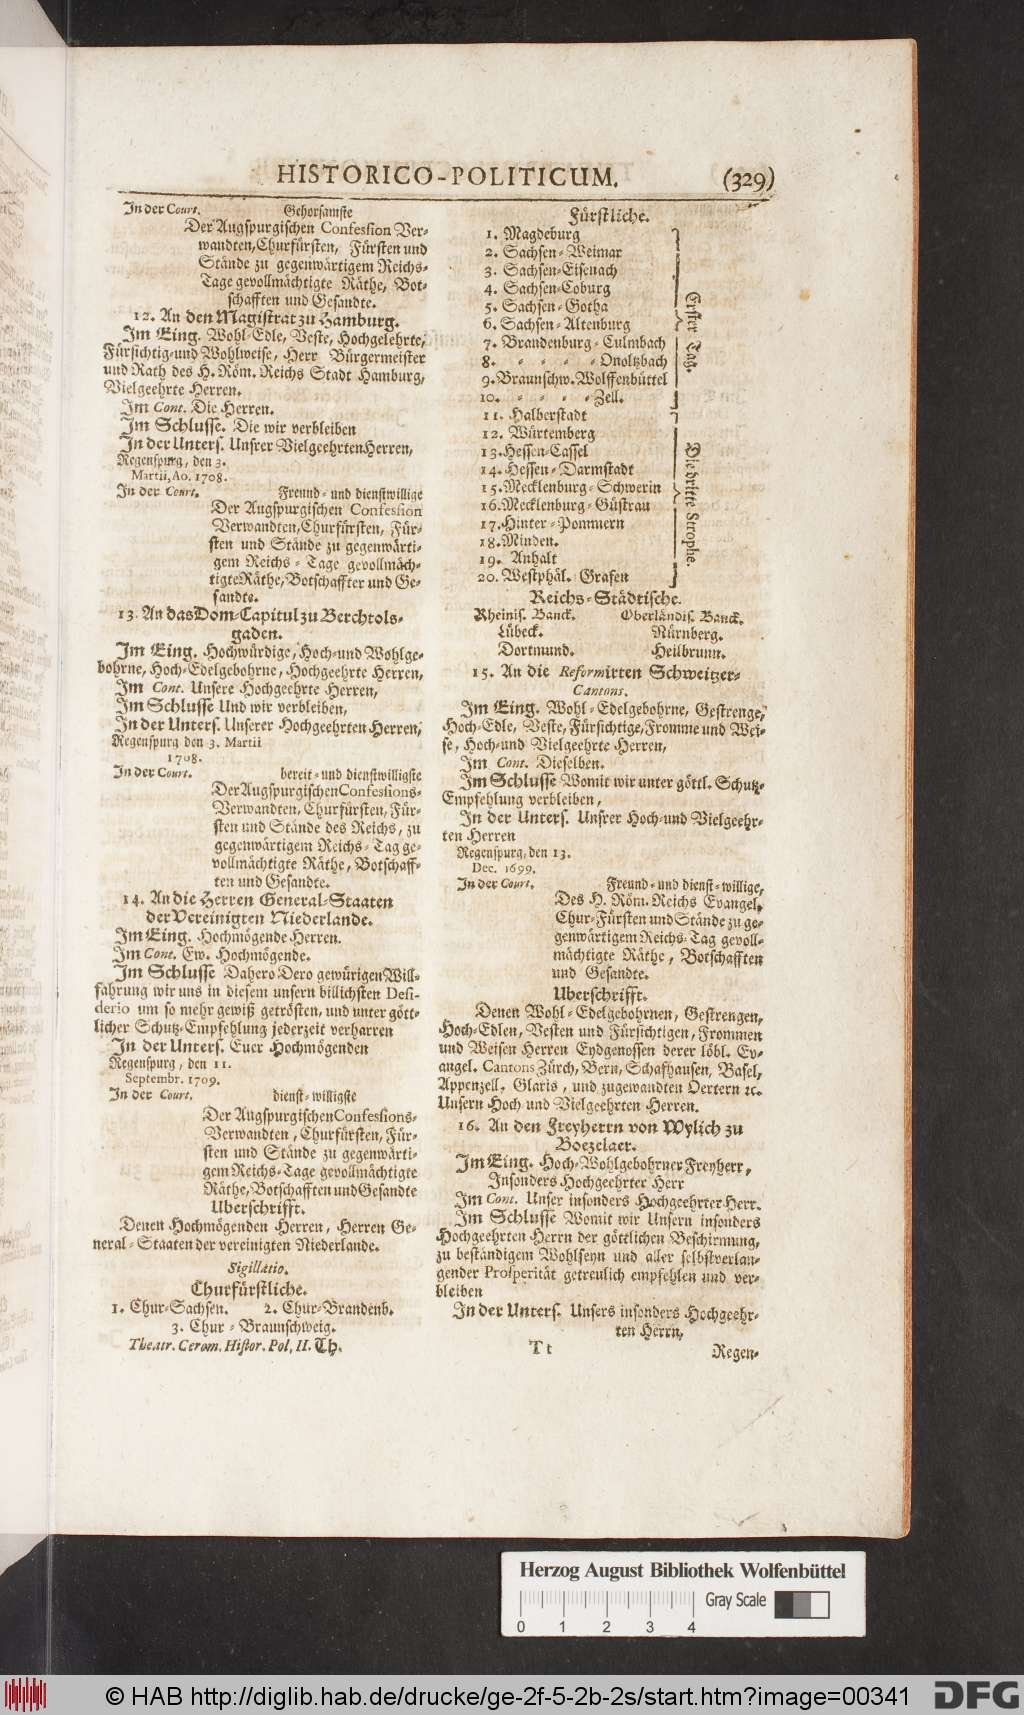 HISTORICO-POLITICUM. (329)
In der Court. Gehorsamste
Der Augspurgischen Confession Ver-
wandten, Churfürsten, Fürsten und
Stände zu gegenwärtigem Reichs-
Tage gevollmächtigte Räthe, Bot-
schafften und Gesandte.
12. An den Magistrat zu Hamburg.
Im Eing. Wohl-Edle, Veste, Hochgelehrte,
Fürsichtig-und Wohlweise, Herr Bürgermeister
und Rath des H. Röm. Reichs Stadt Hamburg,
Vielgeehrte Herren.
Im Cont. Die Herren.
Im Schlusse. Die wir verbleiben
In der Unters. Unsrer Vielgeehrten Herren,
Regenspurg, den 3.
Martii, Ao. 1708.
In der Court. Freund- und dienstwillige
Der Augspurgischen Confession
Verwandten, Churfürsten, Für-
sten und Stände zu gegenwärti-
gem Reichs-Tage gevollmäch-
tigte Räthe, Botschaffter und Ge-
sandte.
13. An das Dom-Capitul zu Berchtols-
gaden.
Im Eing. Hochwürdige, Hoch-und Wohlge-
bohrne, Hoch-Edelgebohrne, Hochgeehrte Herren,
Im Cont. Unsere Hochgeehrte Herren,
Im Schlusse Und wir verbleiben,
In der Unters. Unserer Hochgeehrten Herren,
Regenspurg den 3. Martii
1708.
In der Court. bereit- und dienstwilligste
Der Augspurgischen Confessions-
Verwandten, Churfürsten, Für-
sten und Stände des Reichs, zu
gegenwärtigem Reichs-Tag ge-
vollmächtigte Räthe, Botschaff-
ten und Gesandte.
14. An die Herren General-Staaten
der Vereinigten Niederlande.
Im Eing. Hochmögende Herren.
Im Cont. Ew. Hochmögende.
Im Schlusse Dahero Dero gewürigen Will-
fahrung wir uns in diesem unsern billichsten Desi-
derio um so mehr gewiß getrösten, und unter gött-
licher Schutz-Empfehlung jederzeit verharren
In der Unters. Euer Hochmögenden
Regenspurg, den 11.
Septembr. 1709.
In der Court. dienst-willigste
Der Augspurgischen Confessions-
Verwandten, Churfürsten, Für-
sten und Stände zu gegenwärti-
gem Reichs-Tage gevollmächtigte
Räthe, Botschafften und Gesandte
Uberschrifft.
Denen Hochmögenden Herren, Herren Ge-
neral-Staaten der vereinigten Niederlande.
Sigillatio.
Churfürstliche.
1. Chur-Sachsen. 2. Chur-Brandenb.
3. Chur-Braunschweig.
Theatr. Cerom. Histor. Pol, II. Th.
Fürstliche.
1. Magdeburg
2. Sachsen-Weimar
3. Sachsen-Eisenach
4. Sachsen-Coburg
5. Sachsen-Gotha
6. Sachsen-Altenburg
7. Brandenburg-Culmbach
8. - - - - Onoltzbach
9. Braunschw. Wolffenbüttel
10. - - - - Zell.
Erster Tag.
11. Halberstadt
12. Würtemberg
13. Hessen-Cassel
14. Hessen-Darmstadt
15. Mecklenburg-Schwerin
16. Mecklenburg-Güstrau
17. Hinter-Pommern
18. Minden.
19. Anhalt
20. Westphäl. Grafen
Die dritte Strophe.
Reichs-Städtische.
Rheinis. Banck. Oberländis. Banck.
Lübeck. Nürnberg.
Dortmund. Heilbrunn.
15. An die Reformirten Schweitzer-
Cantons.
Im Eing. Wohl-Edelgebohrne, Gestrenge,
Hoch-Edle, Veste, Fürsichtige, Fromme und Wei-
se, Hoch-und Vielgeehrte Herren,
Im Cont. Dieselben.
Im Schlusse Womit wir unter göttl. Schutz-
Empfehlung verbleiben,
In der Unters. Unsrer Hoch-und Vielgeehr-
ten Herren
Regenspurg, den 13.
Dec. 1699.
In der Court. Freund- und dienst-willige,
Des H. Röm. Reichs Evangel.
Chur-Fürsten und Stände zu ge-
genwärtigem Reichs-Tag gevoll-
mächtigte Räthe, Botschafften
und Gesandte.
Uberschrifft.
Denen Wohl-Edelgebohrnen, Gestrengen,
Hoch-Edlen, Vesten und Fürsichtigen, Frommen
und Weisen Herren Eydgenossen derer löbl. Ev-
angel. Cantons Zürch, Bern, Schafhausen, Basel,
Appenzell, Glaris, und zugewandten Oertern ꝛc.
Unsern Hoch und Vielgeehrten Herren.
16. An den Freyherrn von Wylich zu
Boezelaer.
Im Eing. Hoch-Wohlgebohrner Freyherr,
Insonders Hochgeehrter Herr
Im Cont. Unser insonders Hochgeehrter Herr.
Im Schlusse Womit wir Unsern insonders
Hochgeehrten Herrn der göttlichen Beschirmung,
zu beständigem Wohlseyn und aller selbstverlan-
gender Prosperität getreulich empfehlen und ver-
bleiben
In der Unters. Unsers insonders Hochgeehr-
ten Herrn,
Tt Regen-
Herzog August Bibliothek Wolfenbüttel
Gray Scale
0 1 2 3 4
© HAB http://diglib.hab.de/drucke/ge-2f-5-2b-2s/start.htm?image=00341
DFG